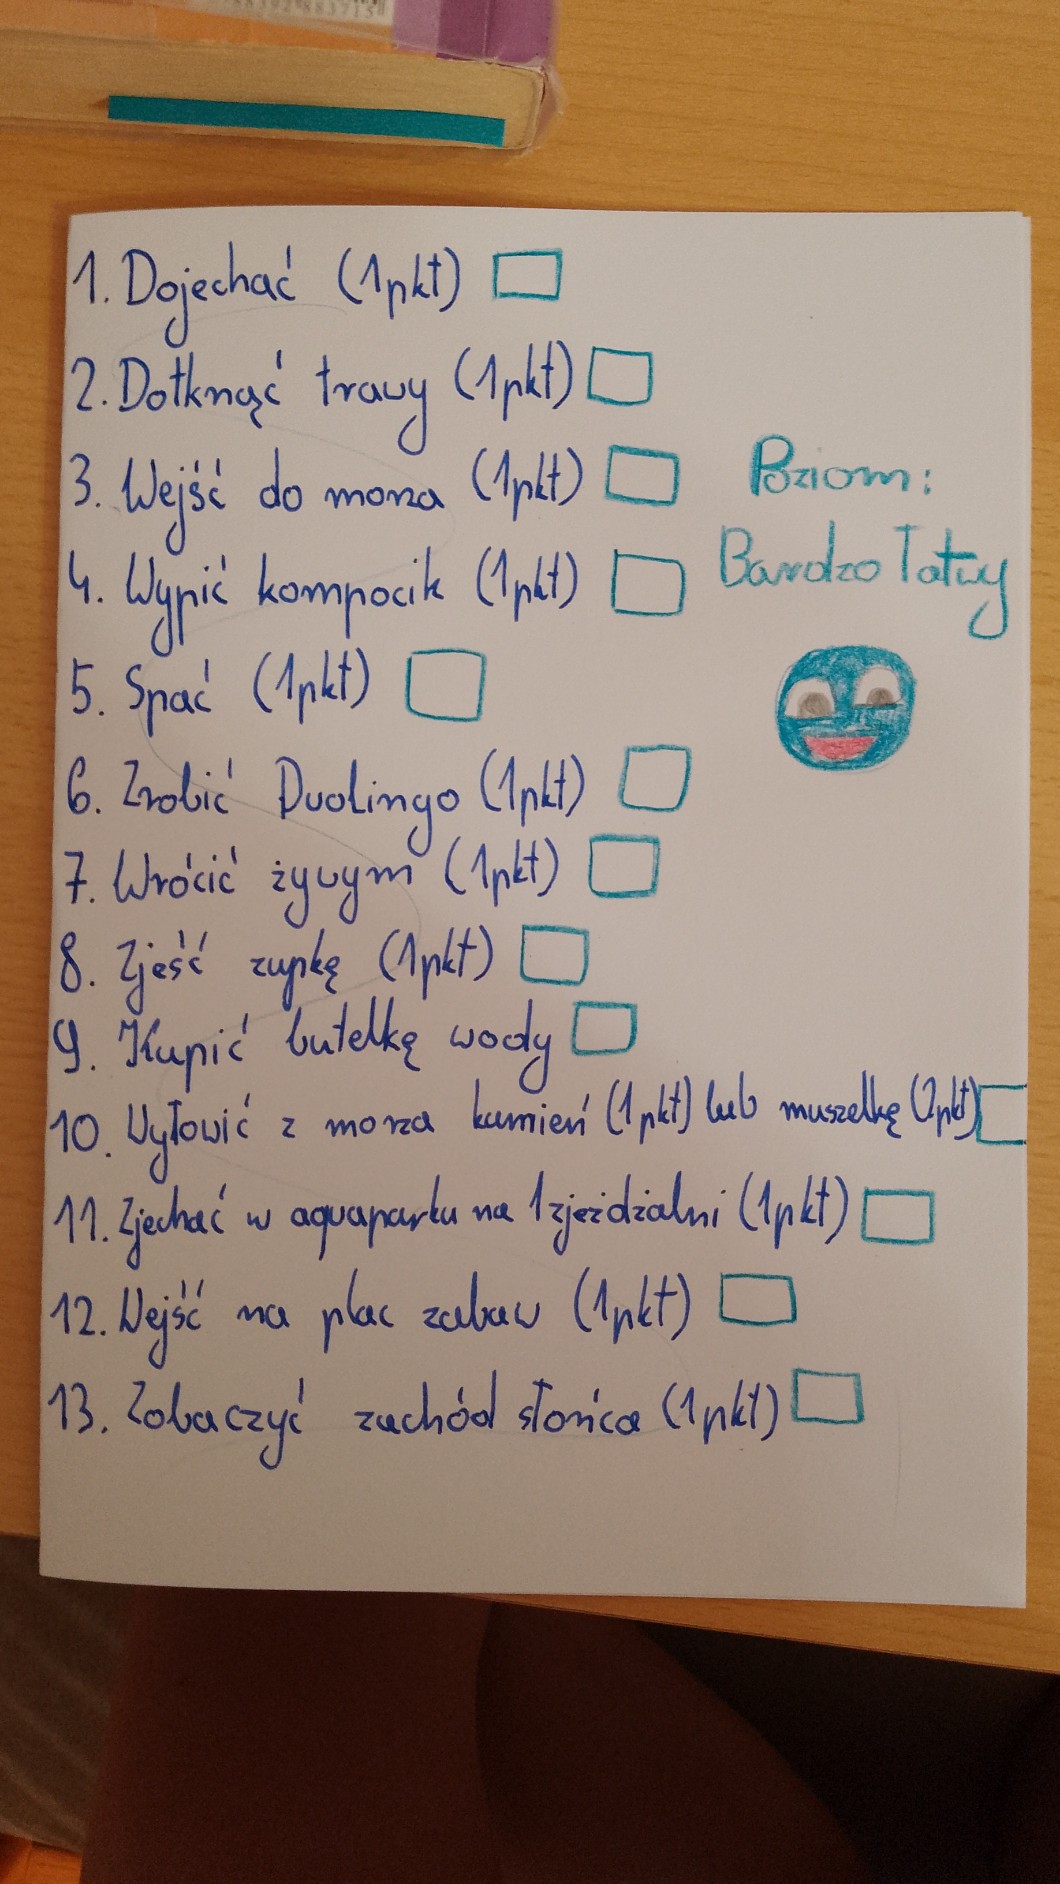 1. Dojechać (1pkt)
2. Dotknąć trawy (1pkt)
3. Wejść do morza (1pkt)
Poziom:
Bardzo łatwy
4. Wypić kompocik (1pkt)
5. Spać (1pkt)
6. Zrobić Duolingo (1pkt)
7. Wrócić żywym (1pkt)
8. Zjeść zupkę (1pkt)
9. Kupić butelkę wody
10. Wyłowić z morza kamień (1pkt) lub muszelkę (2pkt)
11. Zjechać w aquaparku na 1 zjeżdżalni (1pkt)
12. Wejść na plac zabaw (1pkt)
13. Zobaczyć zachód słońca (1pkt)